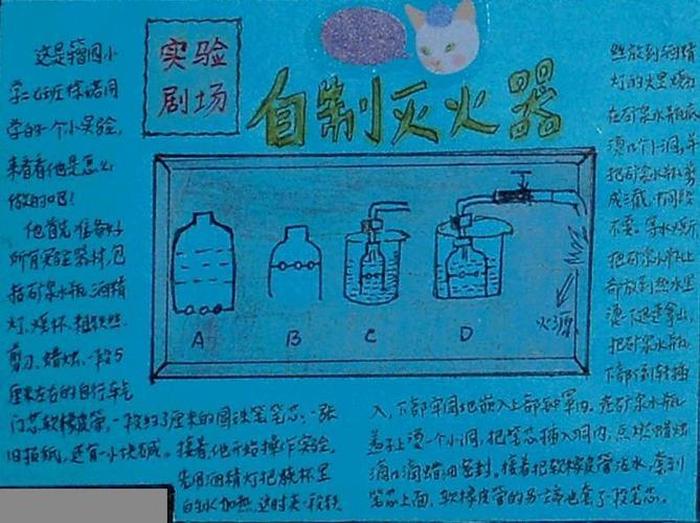 实验
剧场
自制灭火器
这是
学的一个小实验,
来看看他是怎么
做的吧!
他首先准备好
所有实验器材,包
括矿泉水瓶、酒精
灯、烧杯、粗铁丝、
剪刀、蜡烛、一段5
厘米左右的自行车气
门芯软橡皮管,一段约3厘米的圆珠笔笔芯、一张
旧报纸,还有一小块碱。接着,他开始操作实验,
先用酒精灯把烧杯里
的水加热,这时夹一段铁
A
B
C
D
火源
丝放到酒精
灯的火里烧,
在矿泉水瓶底
烫几个小洞,并
把矿泉水瓶剪
成三截,中间段
不要。等水烧开,
把矿泉水瓶上
部放到热水里
烫下迅速拿出,
把矿泉水瓶
下部倒转插
入,下部牢固地嵌入上部
盖子上烫一个小洞,把笔芯插入洞内,点燃蜡烛
滴几滴蜡油密封。接着把软橡皮管沾水,套到
笔芯上面,软橡皮管的另一端也套了一段笔芯。